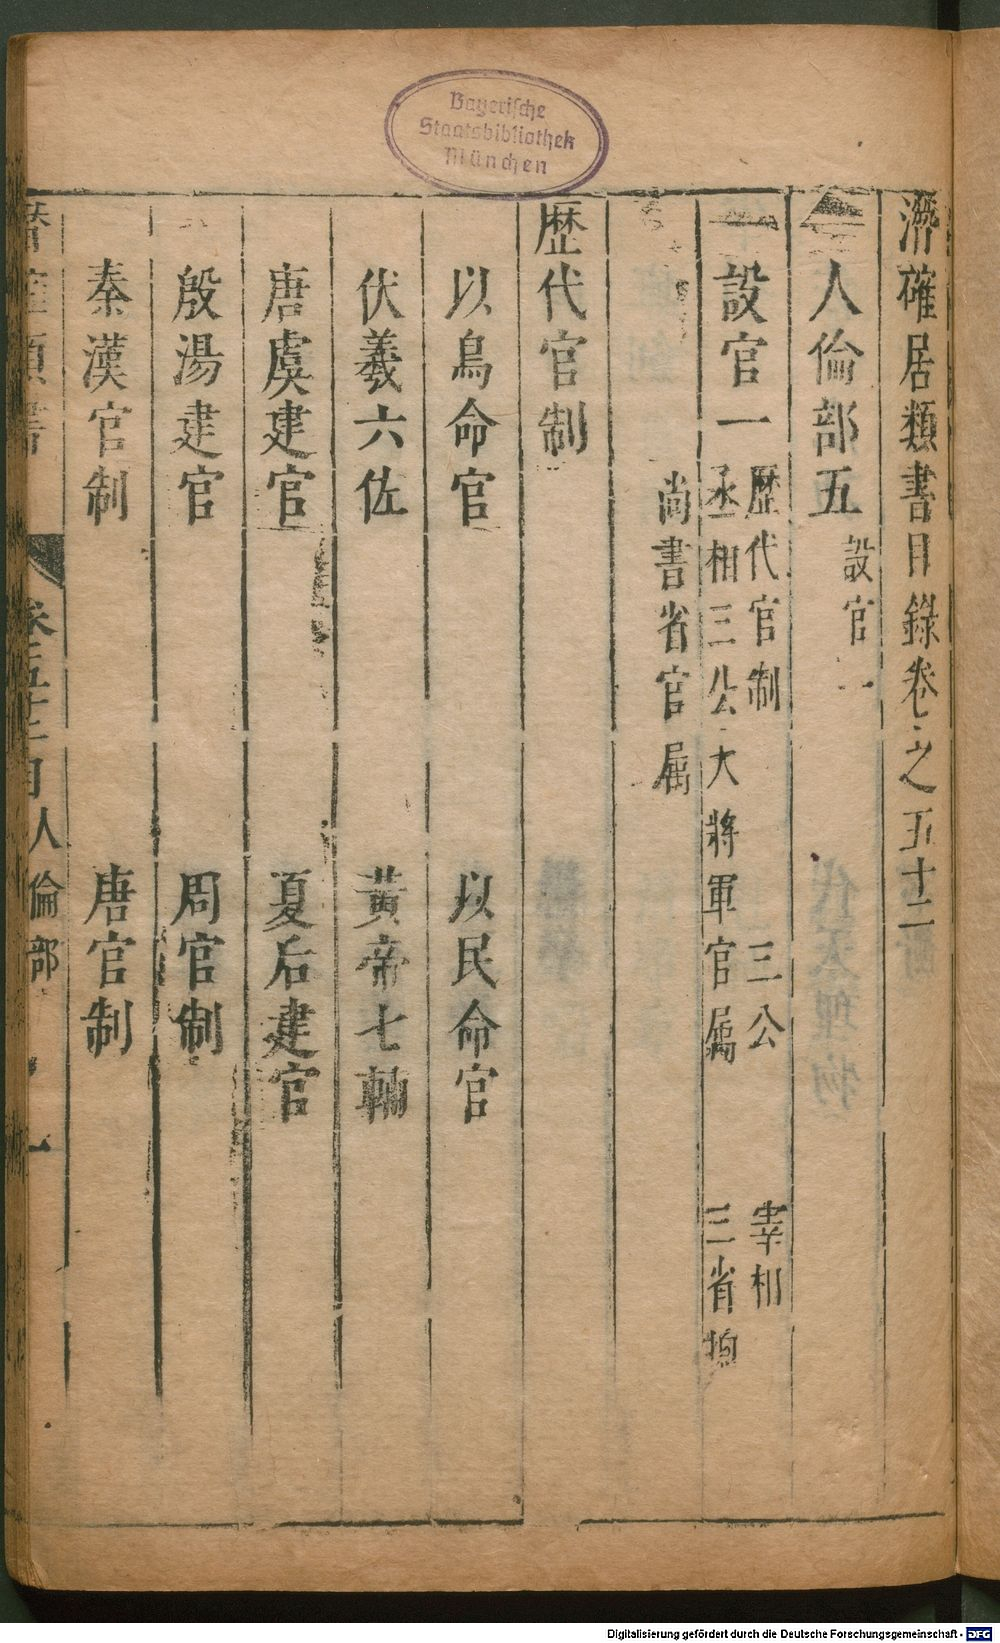 Bayerische
Staatsbibliothek
München
潛確居類書目錄卷之五十二
人倫部五 設官一
設官一 歷代官制 三公 宰相
丞相三公大將軍官屬 三省
尚書省官屬
歷代官制
以鳥命官 以民命官
伏羲六佐 黃帝七輔
唐虞建官 夏后建官
殷湯建官 周官制
秦漢官制 唐官制
潛確類書 卷五十二目 人倫部 一
Digitalisierung gefördert durch die Deutsche Forschungsgemeinschaft - DFG